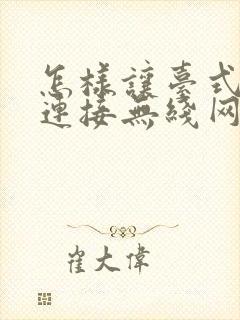 怎样讓臺式
連接無綫网
崔大偉